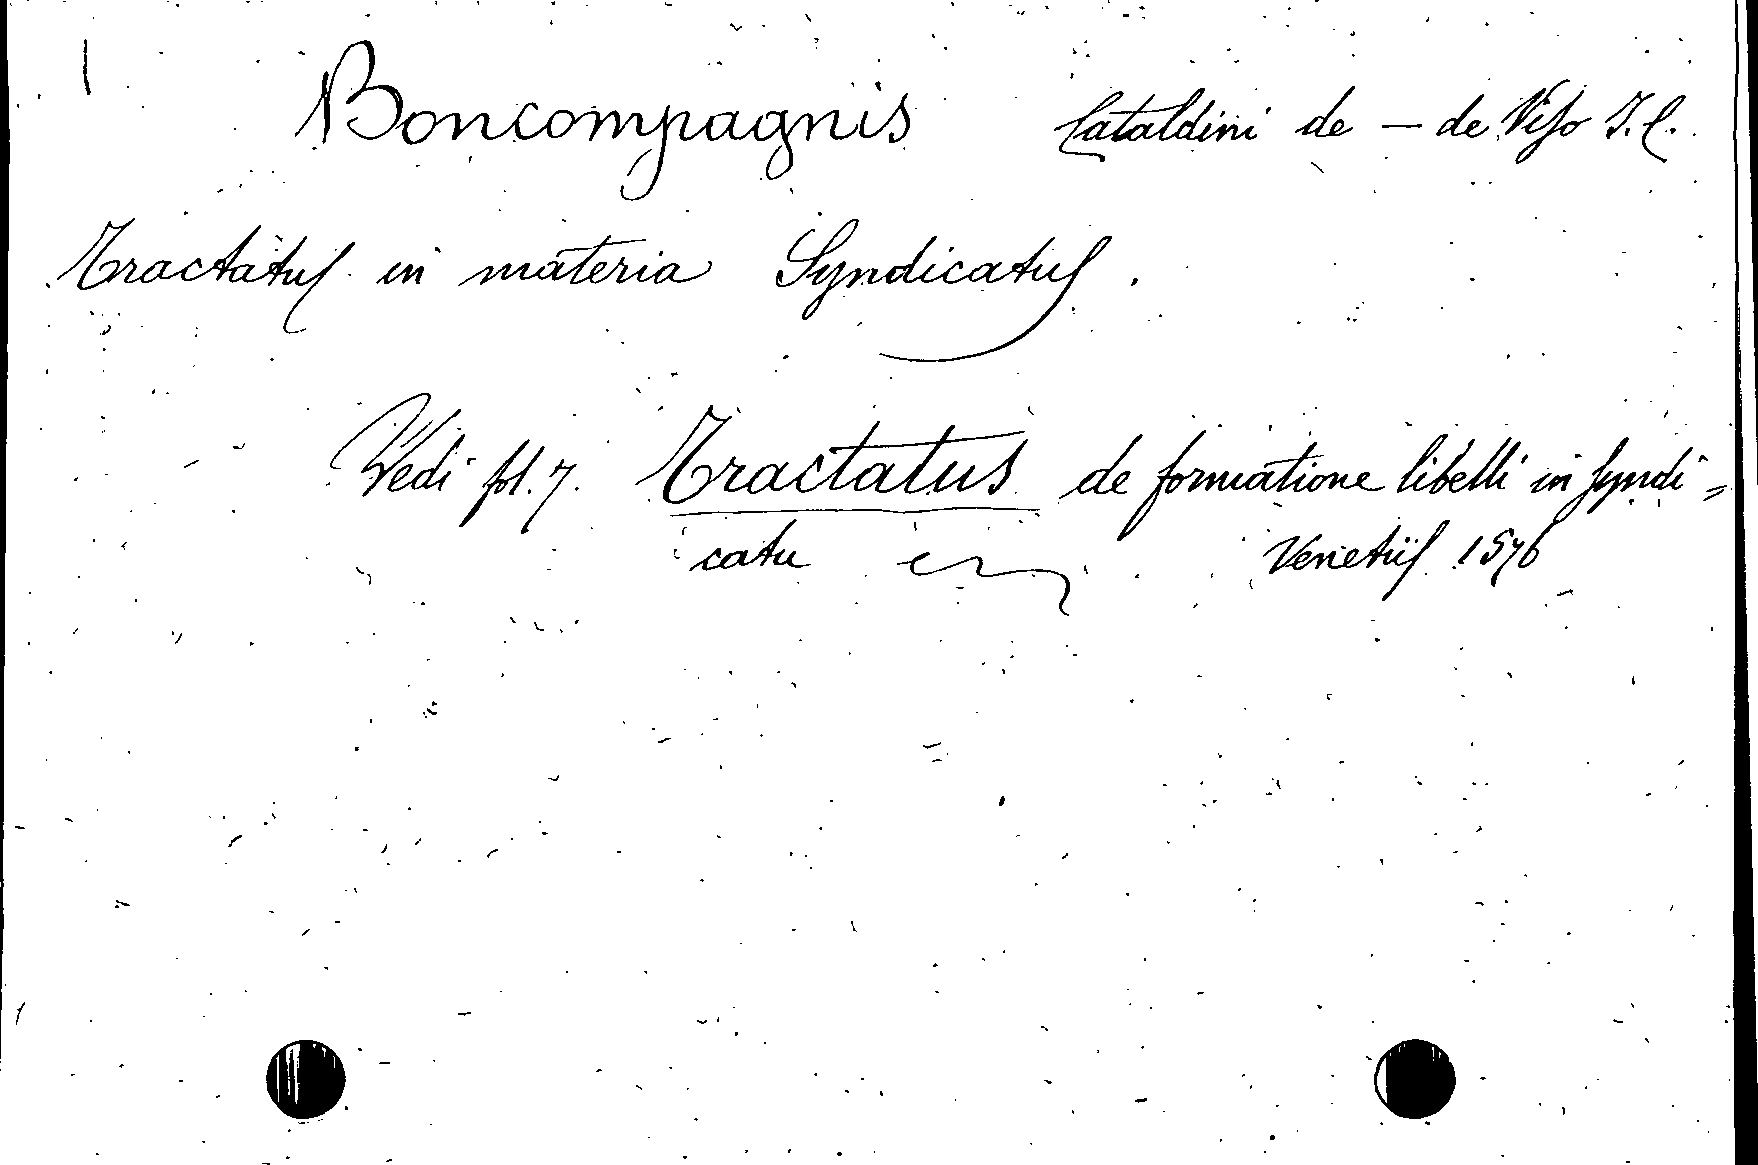 Boncompagnis Cataldini de — de Viso I.C.
Tractatus in materia Syndicatus.
Vedi fol. 7. Tractatus de formatione libelli in syndi=
catu Venetiis 1576